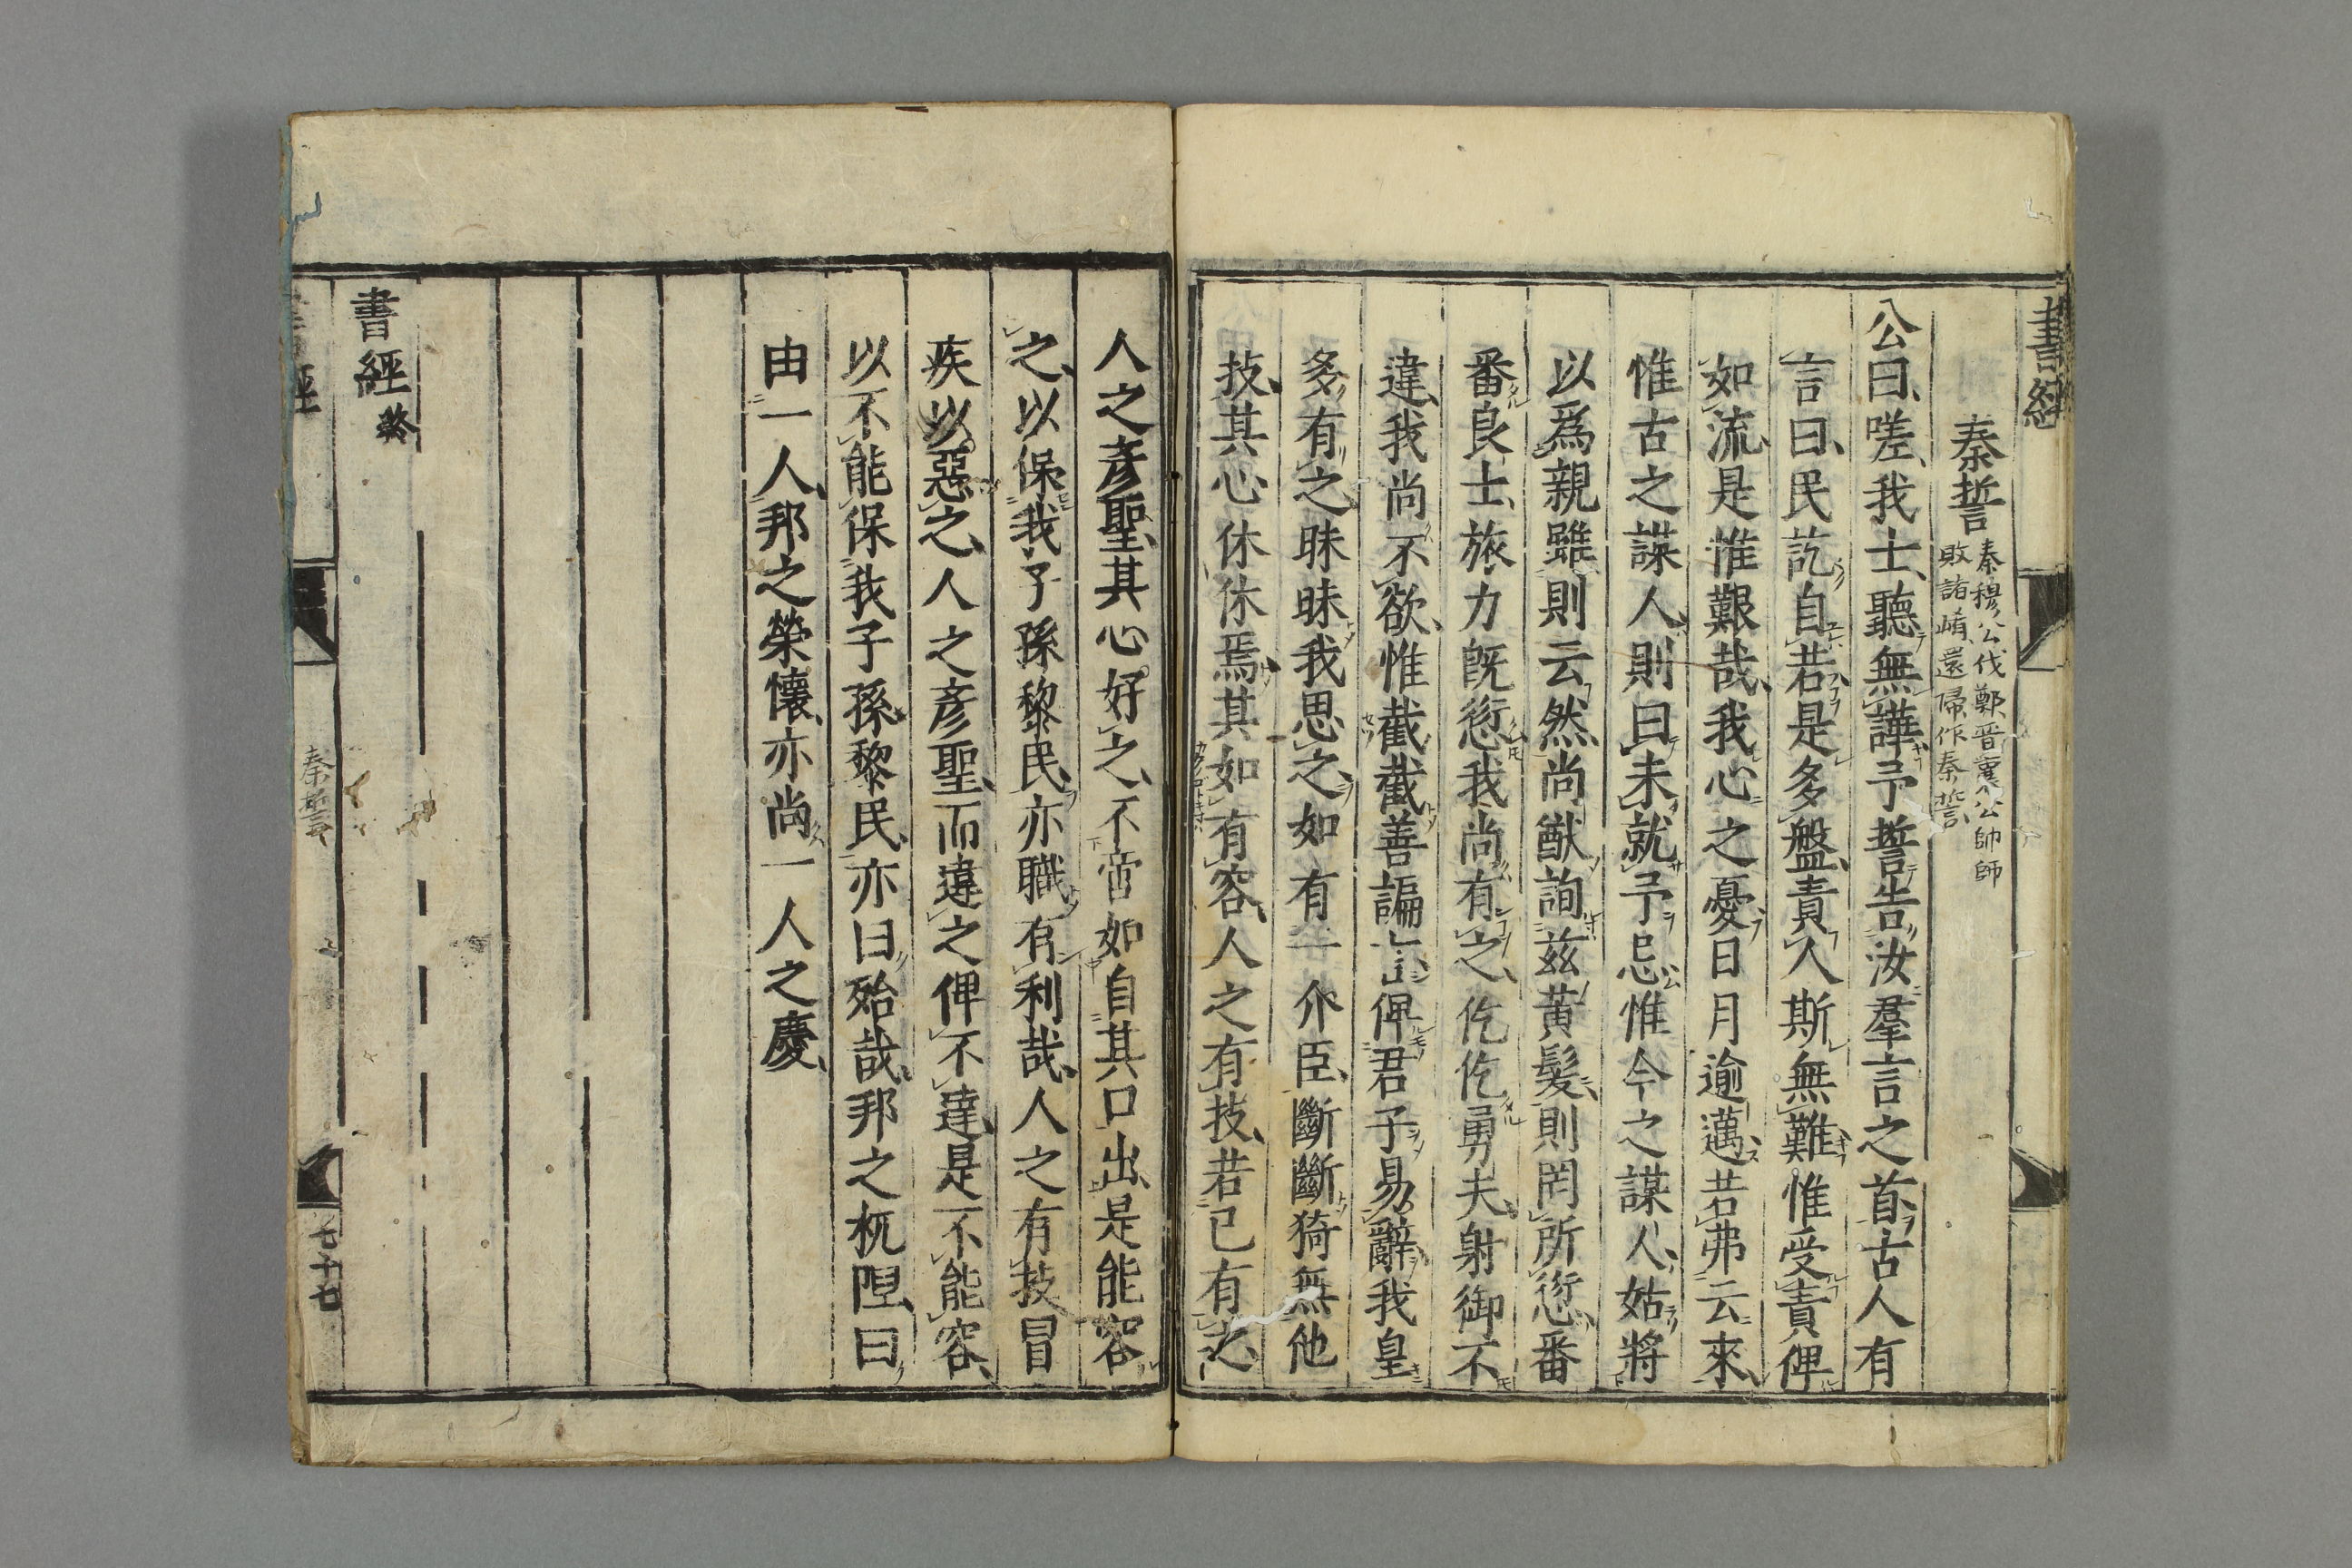 書經
秦誓 秦穆公伐鄭晋襄公帥師
敗諸崤還歸作秦誓
公曰嗟我士聽無譁予誓告汝羣言之首古人有
言曰民訖自若是多盤責人斯無難惟受責俾
如流是惟艱哉我心之憂日月逾邁若弗云來
惟古之謀人則曰未就予忌惟今之謀人姑將
以爲親雖則云然尚猷詢茲黄髮則罔所愆番
番良士旅力既愆我尚有之仡仡勇夫射御不
違我尚不欲惟截截善諞言俾君子易辭我皇
多有之昧昧我思之如有一介臣斷斷猗無他
技其心休休焉其如有容人之有技若已有之
人之彦聖其心好之不啻如自其口出是能容
之以保我子孫黎民亦職有利哉人之有技冒
疾以惡之人之彦聖而違之俾不達是不能容
以不能保我子孫黎民亦曰殆哉邦之杌隉曰
由一人邦之榮懷亦尚一人之慶
書經終
書經
秦誓
七十七